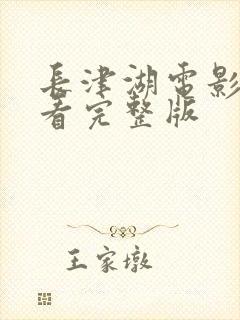 長津湖電影
看完整版
王家墩